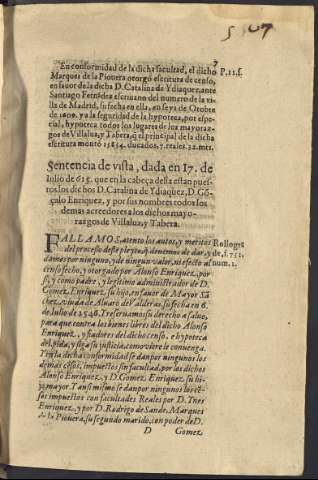 5 567
9
En conformidad de la dicha facultad, el dicho P.11.f.
Marques de la Piouera otorgò escritura de censo,
en fauor de la dicha D. Catalina de Ydiaquez ante
Santiago Fernãdez escriuano del numero de la vi-
lla de Madrid, su fecha en ella, en seys de Otubre
de 1609. ya la seguridad de la hypoteca, por espe-
cial, hypoteca todos los lugares de los mayoraz-
gos de Villalua, y Tabera, q̃ el principal de la dicha
escritura montò 15854. ducados, 7. reales. 32. mrs.
Sentencia de vista, dada en 17. de
Iulio de 615. que en la cabeça della estan pues-
tos los dichos D. Catalina de Ydiaquez, D. Gõ-
çalo Enriquez, y por sus nombres todos los
demas acreedores a los dichos mayo-
razgos de Villalua, y Tabera.
FALLAMOS, atento los autos, y meritos Rollo grã
del processo deste pleyto, q̃ deuemos de dar, y de, f. 752.
damos por ninguno, y de ningun valor, ni efecto al num. 1.
censo fecho, y otorgado por Alonso Enriquez, por
si, y como padre, y legitimo administrador de D.
Gomez Enriquez, su hijo, en fauor de Mayor Sã
chez, viuda de Aluaro de Valderas, su fecha en 6.
de Iulio de 1546. Y reseruamos su derecho a saluo,
para que contra los bienes libres del dicho Alonso
Enriquez, y fiadores del dicho censo, e hypoteca
del, pida, y siga su justicia, como viere le conuenga.
Y en la dicha conformidad se dan por ningunos los
demas cẽsos, impuestos sin facultad, por los dichos
Alonso Enriquez, y D. Gomez Enriquez su hi-
jo, mayor. Y ansi mismo se dan por ningunos los cẽ-
sos impuestos con facultades Reales por D. Ynes
Enriquez, y por D. Rodrigo de Sande, Marques
de la Piouera, su segundo marido, con poder de D.
D Gomez